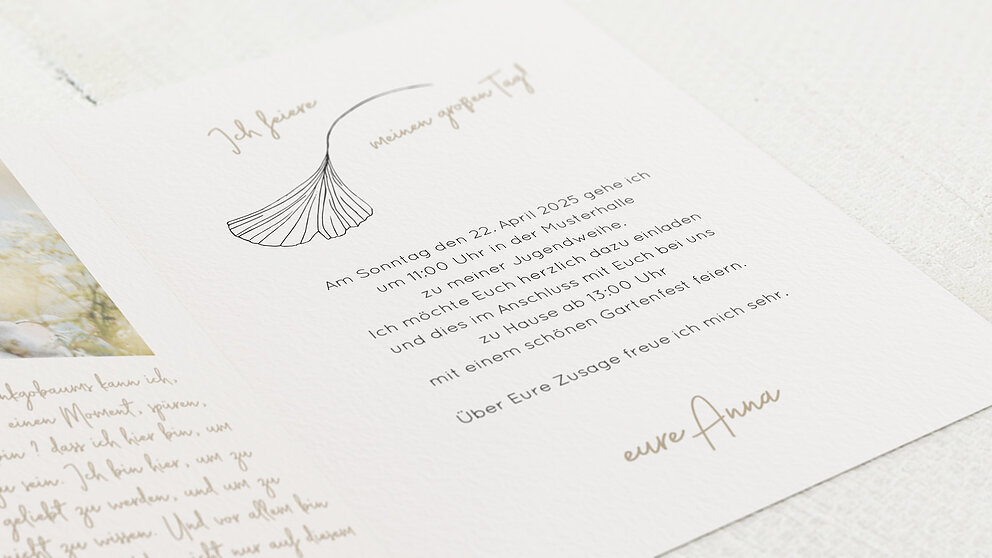 Ich feiere
meinen großen Tag!
Am Sonntag den 22. April 2025 gehe ich
um 11:00 Uhr in der Musterhalle
zu meiner Jugendweihe.
Ich möchte Euch herzlich dazu einladen
und dies im Anschluss mit Euch bei uns
zu Hause ab 13:00 Uhr
mit einem schönen Gartenfest feiern.
Über Eure Zusage freue ich mich sehr,
eure Anna
nkgobaums kann ich,
einen Moment, spüren,
bin ? dass ich hier bin, um
zu sein. Ich bin hier, um zu
geliebt zu werden, und um zu
nicht zu wissen. Und vor allem bin
nicht nur auf diesem